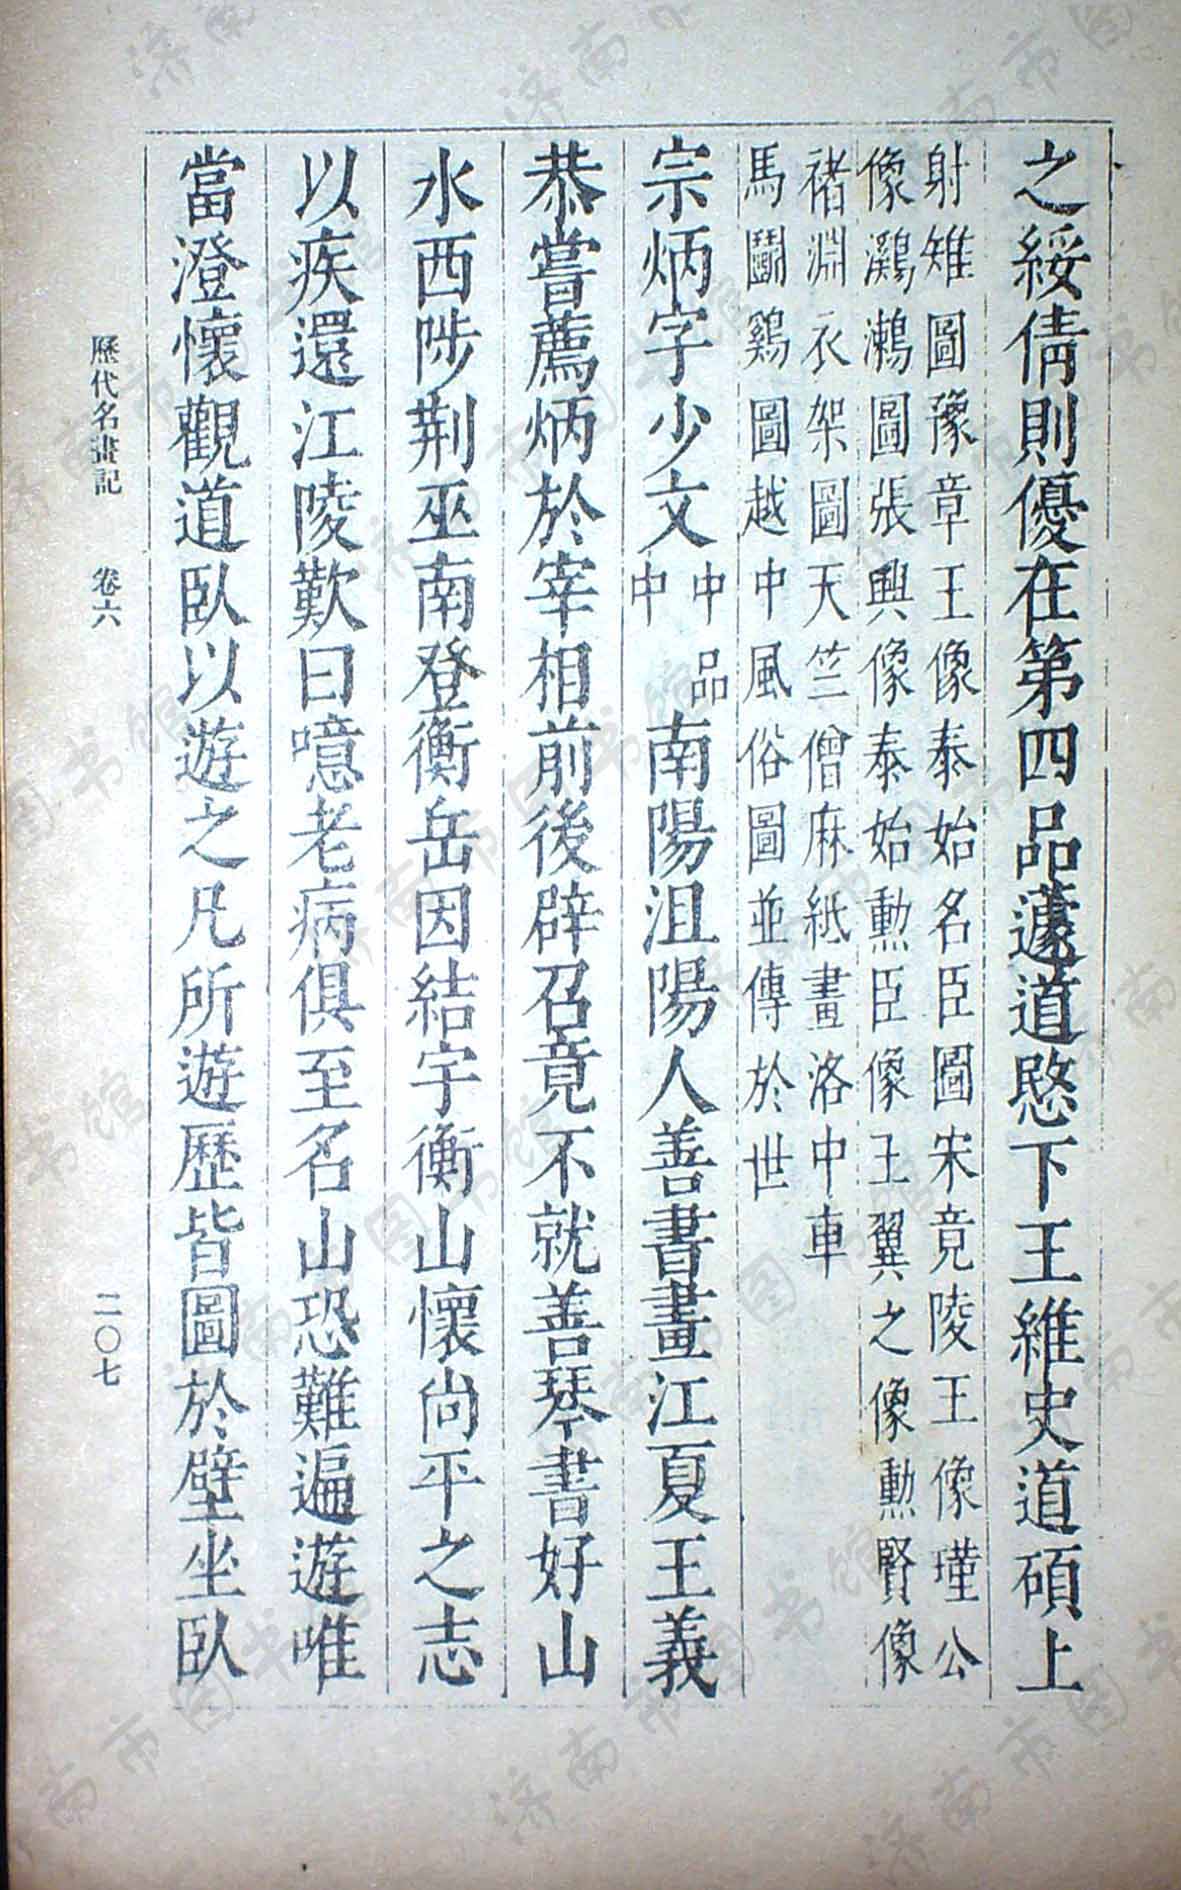 之綏倩則優在第四品蘧道愍下王維史道碩上
射雉圖豫章王像泰始名臣圖宋竟陵王像瑾公
像鸂鶒圖張興像泰始勳臣像王翼之像勳賢像
褚淵衣架圖天竺僧麻紙畫洛中車
馬鬭鷄圖越中風俗圖並傳於世
宗炳字少文中品中南陽沮陽人善書畫江夏王義
恭嘗薦炳於宰相前後辟召竟不就善琴書好山
水西陟荆巫南登衡岳因結宇衡山懷尙平之志
以疾還江陵歎曰噫老病俱至名山恐難遍遊唯
當澄懷觀道臥以遊之凡所遊歷皆圖於壁坐臥
歷代名畫記 卷六 二〇七